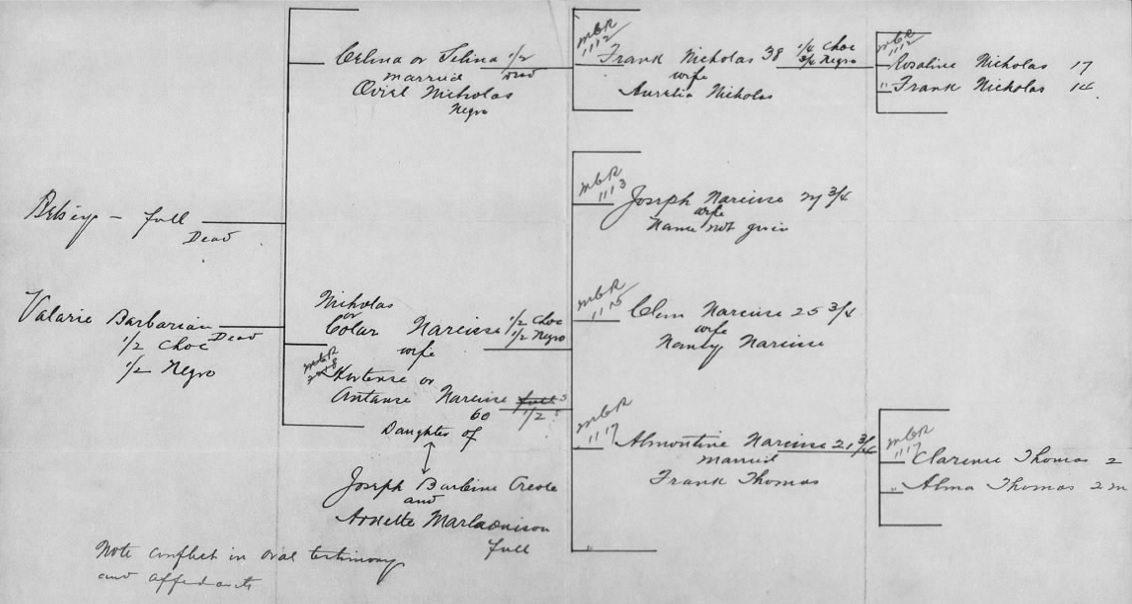 Betsey - full
Dead
Valarie Barbarian Dead
1/2 Choc
1/2 Negro
Celina or Selina 1/2
married Dead
Ovril Nicholas
Negro
Nicholas
or
Colar Narcisse 1/2 Choc
wife 1/2 Negro
MCR
Hortense or
Antause Narcisse full
60 1/2
Daughter of
Joseph Barbine Creole
and
full
Note conflict in oral testimony
and affidavits
MCR
1112
Frank Nicholas 38 1/4 Choc
wife 3/4 Negro
Aurelia Nicholas
MCR
1113
Joseph Narcisse 27 3/4
wife
Name not given
MCR
1115
Clem Narcisse 25 3/4
wife
Nancy Narcisse
MCR
1117
Almontine Narcisse 21 3/4
married
Frank Thomas
MCR
1112
Rosaline Nicholas 17
" Frank Nicholas 14
MCR
1117
Clarence Thomas 2
" Alma Thomas 2 m